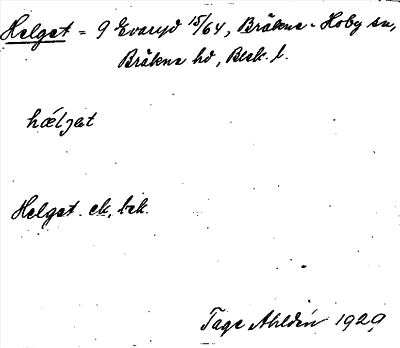 Helget = 9 Evaryd 15/64, Bräkne-Hoby sn,
Bräkne hd, Blek. l.
hæljət
Helget. ek, bek.
Tage Ahldén 1929